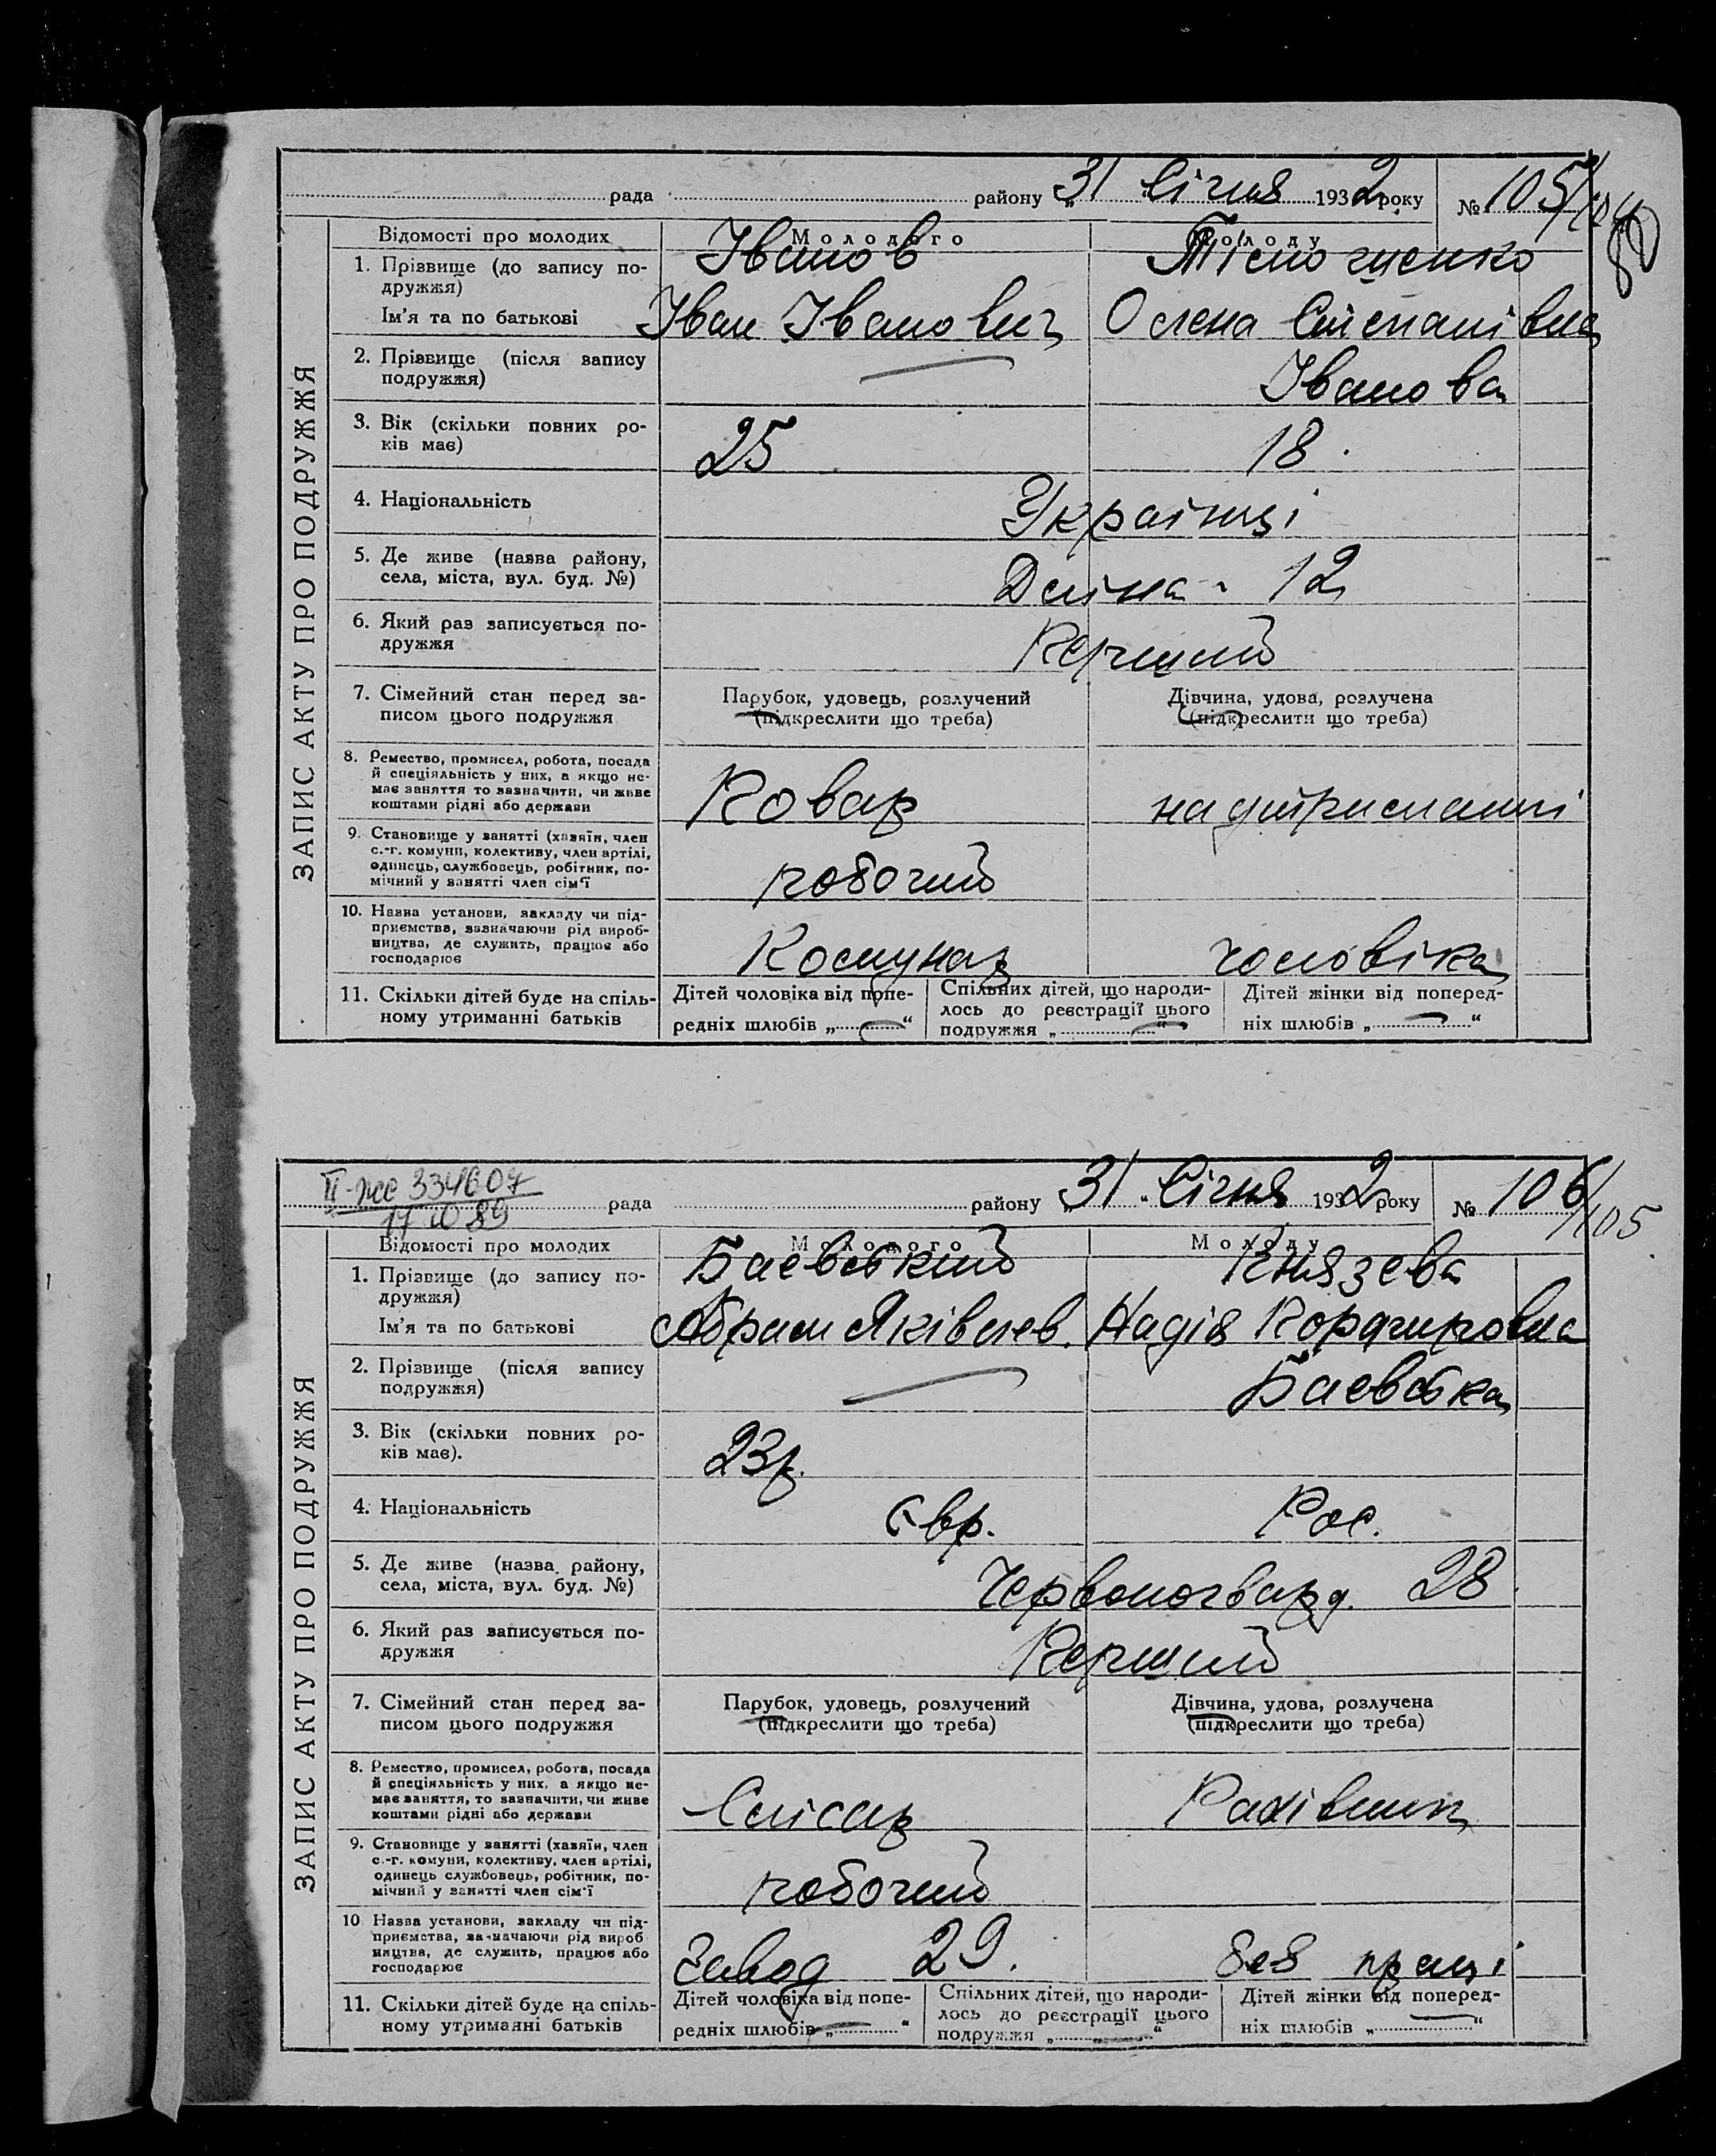 ЗАПИС АКТУ ПРО ПОДРУЖЖЯ
рада району „31 Січня 1932 року № 105/104
Відомості про молодих Молодого Молоду
1. Прізвище (до запису по- Іванов
дружжя)
Ім'я та по батькові Іван Іванович Олена Степанівна
2. Прізвище (після запису
подружжя) Іванова
3. Вік (скільки повних ро- 25 18
ків має)
4. Національність Українці
5. Де живе (назва району,
села, міста, вул. буд. №) 12
6. Який раз записується по- Перший
дружжя
7. Сімейний стан перед за- Парубок, удовець, розлучений Дівчина, удова, розлучена
писом цього подружжя (підкреслити що треба) (підкреслити що треба)
8. Ремество, промисел, робота, посада
й спеціяльність у них, а якщо не-
має заняття то зазначити, чи живе Ковар на утриманні
коштами рідні або держави
9. Становище у занятті (хазяїн, член
с.-г. комуни, колективу, член артілі,
одинець, службовець, робітник, по- робочий
мічний у занятті член сім'ї
10. Назва установи, закладу чи під-
приємства, зазначаючи рід вироб-
ництва, де служить, працює або Комунар чоловіка
господарює
11. Скільки дітей буде на спіль- Дітей чоловіка від попе- Спільних дітей, що народи- Дітей жінки від поперед-
ному утриманні батьків редніх шлюбів „ “ лось до реєстрації цього ніх шлюбів „ “
подружжя „ “
ЗАПИС АКТУ ПРО ПОДРУЖЖЯ
II-жс 334607
17 10 89
рада району „31 “ Січня 1932 року № 106/105
Відомості про молодих Молодого Молоду
1. Прізвище (до запису по- Баєвський Князева
дружжя)
Ім'я та по батькові Абрам Яківлев. Надія
2. Прізвище (після запису
подружжя) Баєвська
3. Вік (скільки повних ро- 23р.
ків має).
4. Національність Євр. Рос.
5. Де живе (назва району,
села, міста, вул. буд. №) Червоногвард. 28
6. Який раз записується по- Перший
дружжя
7. Сімейний стан перед за- Парубок, удовець, розлучений Дівчина, удова, розлучена
писом цього подружжя (підкреслити що треба) (підкреслити що треба)
8. Ремество, промисел, робота, посада
й спеціяльність у них, а якщо не-
має заняття, то зазначити, чи живе Слісар Рахівник
коштами рідні або держави
9. Становище у занятті (хазяїн, член
с.-г. комуни, колективу, член артілі,
одинець службовець, робітник, по- робочий
мічний у занятті член сім'ї
10 Назва установи, закладу чи під-
приємства, зазначаючи рід вироб
ництва, де служить, працює або Завод 29. без праці
господарює
11. Скільки дітей буде на спіль- Дітей чоловіка від попе- Спільних дітей, що народи- Дітей жінки від поперед-
ному утриманні батьків редніх шлюбів „ “ лось до реєстрації цього ніх шлюбів „ “
подружжя „ “